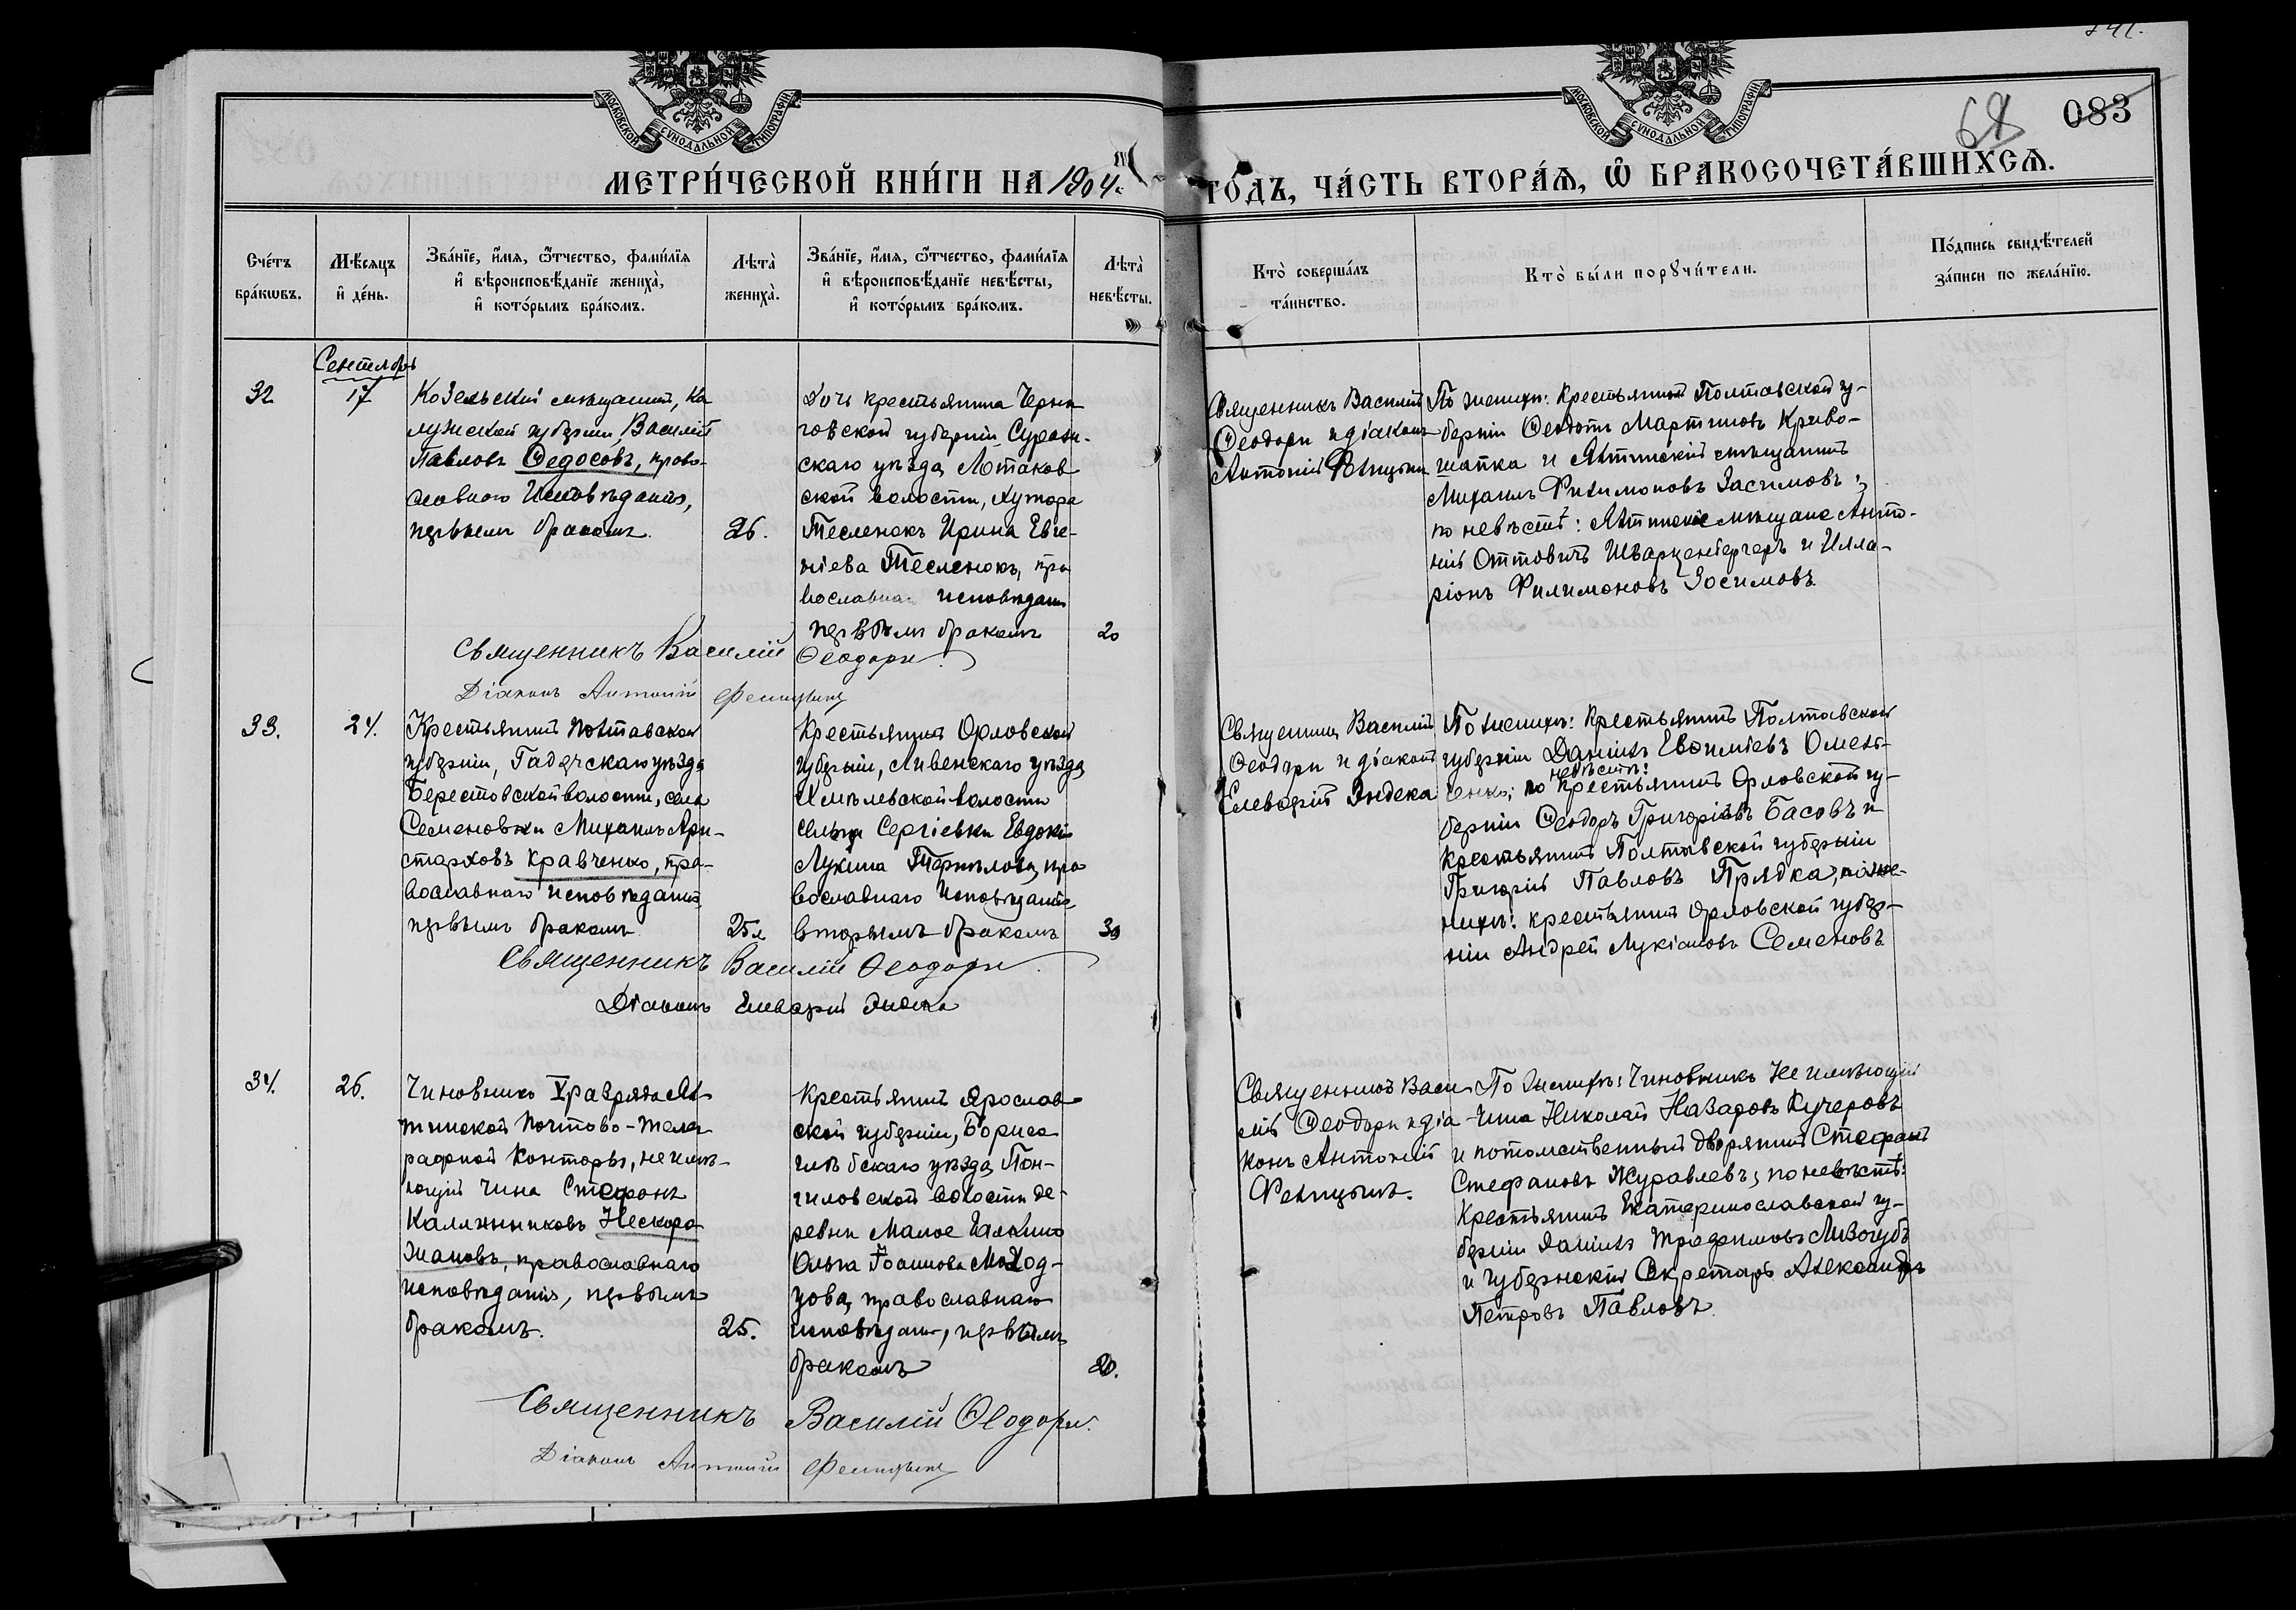 МОСКОВСКОЙ СѴНОДАЛЬНОЙ ТИПОГРАФІИ
МОСКОВСКОЙ СѴНОДАЛЬНОЙ ТИПОГРАФІИ
68 083
МЕТРИ́ЧЕСКОЙ КНИ́ГИ НА 1904 ГО́ДЪ, ЧА́СТЬ ВТОРА́Ѧ, Ѡ҆ БРАКОСОЧЕТА́ВШИХСѦ.
Сче́тъ
бра́кѡвъ.
Мѣ́сяцъ
и҆ де́нь.
Зва́нїе, и҆́мѧ, ѻ҆́тчество, фами́лїѧ
и҆ вѣроисповѣ́данїе жениха̀,
и҆ кото́рымъ бра́комъ.
Лѣта̀
жениха̀.
Зва́нїе, и҆́мѧ, ѻ҆́тчество, фами́лїѧ
и҆ вѣроисповѣ́данїе невѣ́сты,
и҆ кото́рымъ бра́комъ.
Лѣта̀
невѣ́сты.
Кто̀ соверша́лъ
та́инство.
Кто̀ бы́ли порꙋчи́тели.
По́дпись свидѣ́телей
за́писи по жела́нїю.
Сентябрь
32
17
Козельскій мѣщанинъ, Ка
лужской губерніи, Василій
Павловъ Ѳедосовъ, право-
славнаго исповѣданія,
первымъ бракомъ.
26.
Дочь крестьянина Черни
говской губерніи, Сураж-
скаго уѣзда,
ской волости, хутора
Тесленокъ Ирина Евге-
ніева Тесленокъ, пра
вославнаго исповѣданія
первымъ бракомъ
20
Священникъ Василій
Ѳеодори и діаконъ
Антоній
По женихѣ: Крестьянинъ Полтавской гу-
берніи Ѳеодотъ Мартиновъ Криво-
шапка и Ялтинскій мѣщанинъ
Михаилъ Филимоновъ Засимовъ;
по невѣстѣ: Ялтинскіе мѣщане Анто-
ній Оттовичъ Шварценбергеръ и Илла-
ріонъ Филимоновъ Зосимовъ
Священникъ Василій Ѳеодори.
Діаконъ Антоній
33.
24.
Крестьянинъ Полтавской
губерніи, Гадячскаго уѣзда
Берестовской волости, села
Семеновки Михаилъ Ари-
старховъ Кравченко, пра-
вославнаго исповѣданія
первымъ бракомъ
25 л
Крестьянинъ Орловской
губерніи, Ливенскаго уѣзда
волости
сельца Сергіевки Евдокія
Лукина Терпѣлова, пра
вославнаго исповѣданія
вторымъ бракомъ
30
Священникъ Василій
Ѳеодори и діаконъ
Елевферій Яндека
По женихѣ: Крестьянинъ Полтавской
губерніи Даніилъ Евѳиміевъ Омель-
невѣстѣ:
ченко; по Крестьянинъ Орловской гу-
берніи Ѳеодоръ Григоріевъ Басовъ и
крестьянинъ Полтавской губерніи
Григорій Павловъ Прядка, по же-
нихѣ: крестьянинъ Орловской губер-
ніи Андрей Лукіановъ Семеновъ
Священникъ Василій Ѳеодори.
Діаконъ Елевферій Яндека
34.
26.
Чиновникъ V разряда Ял-
тинской Почтово-теле
графной Конторы, не имѣ-
ющій чина Стефанъ
Калинниковъ Нескоро
жановъ, православнаго
исповѣданія, первымъ
бракомъ.
25.
Крестьянинъ Ярослав
ской губерніи, Борисо
глѣбскаго уѣзда, Пон-
гиловской волости де-
ревни Малое Галкино
Ольга Іоаннова
цова, православнаго
исповѣданія, первымъ
бракомъ
20.
Священникъ Васи
лій Ѳеодори и діа-
конъ Антоній
По женихѣ: Чиновникъ не имѣющій
чина Николай Назаровъ Кучеровъ
и потомственный дворянинъ Стефанъ
Стефановъ Журавлевъ; по невѣстѣ:
Крестьянинъ Екатеринославской гу-
берніи Даніилъ Трофимовъ Лизогубъ
и губернскій Секретарь Александръ
Петровъ Павловъ.
Священникъ Василій Ѳеодори.
Діаконъ Антоній